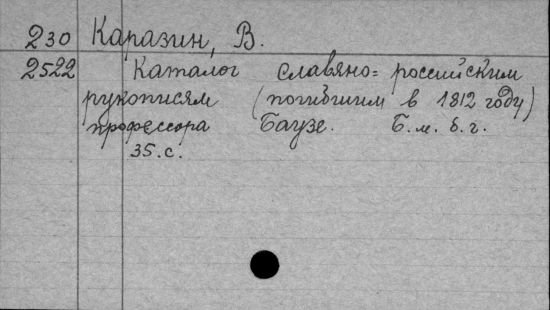 230 Каразин, В.
2522 Каталог славяно= российским
рукописям (погибшим в 1812 году)
профессора Баузе. Б.м. б.г.
35.с.